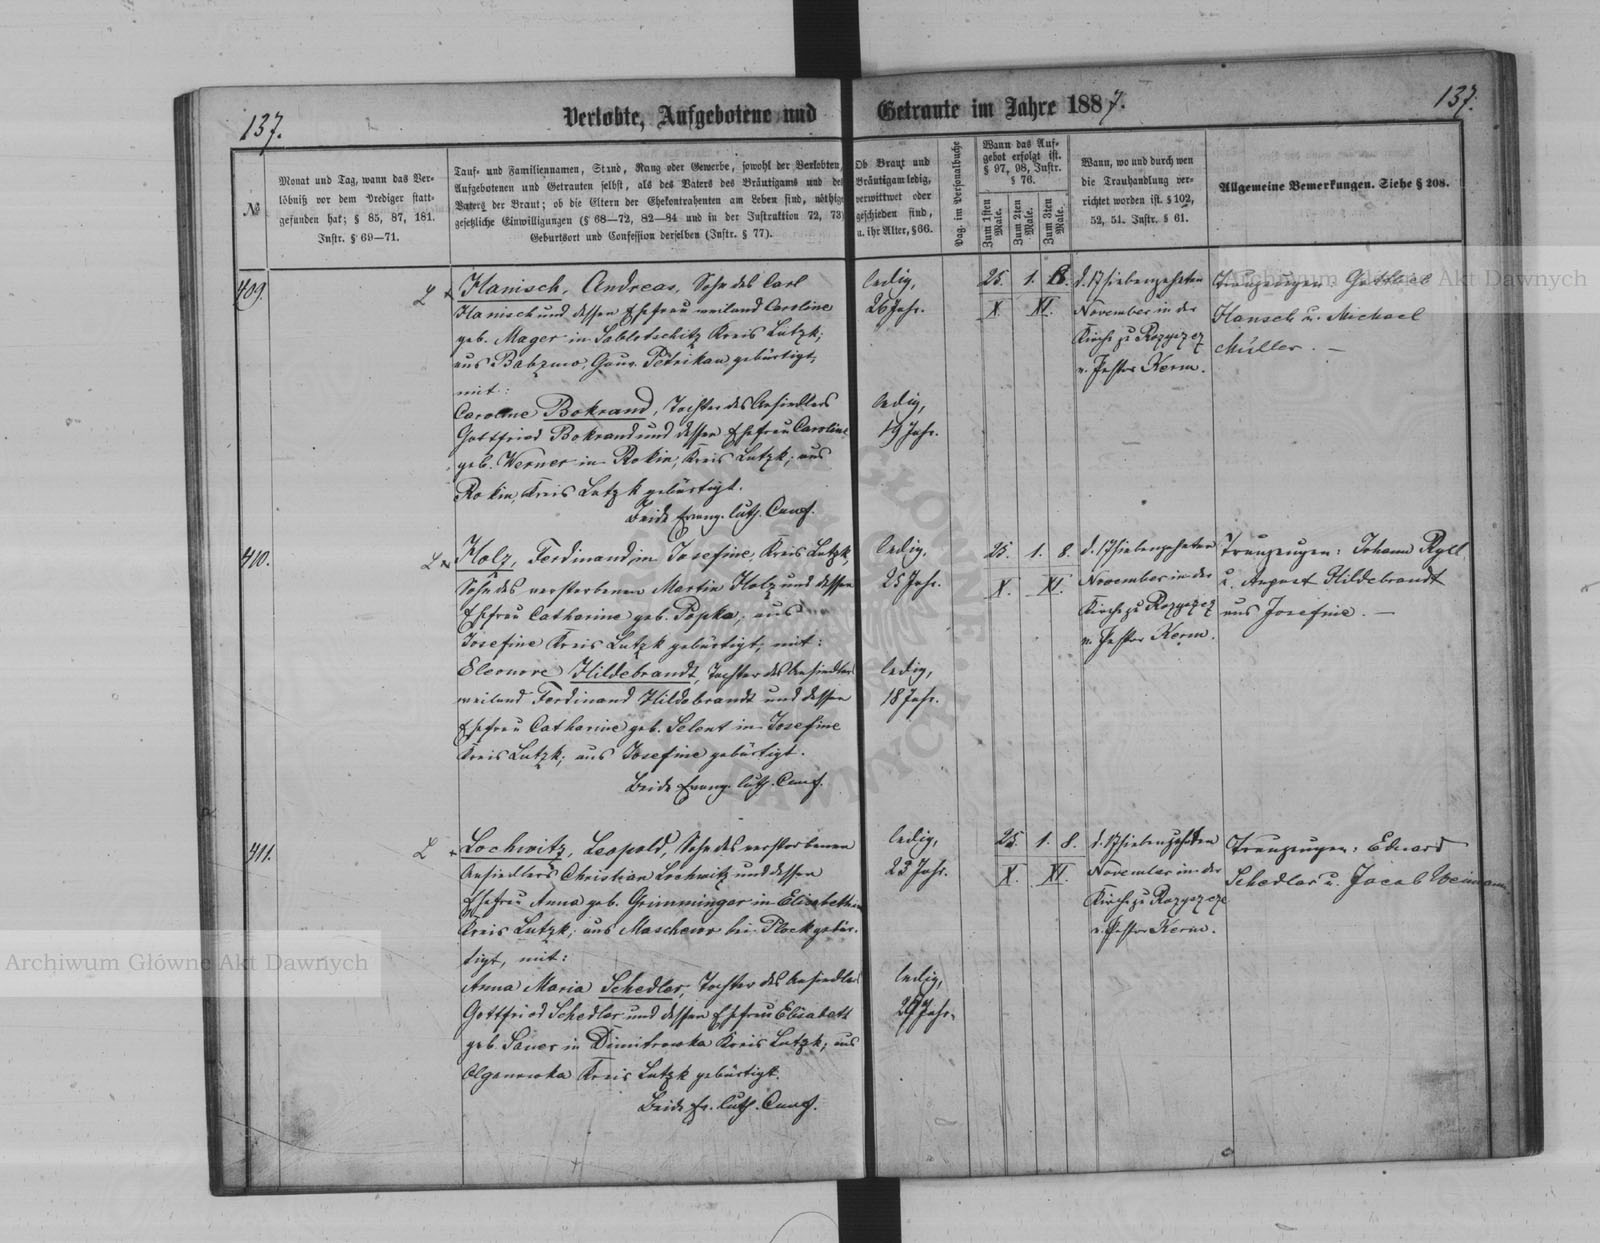 137.
Verlobte, Aufgebotene und Getraute im Jahre 1887.
137.
№
Monat und Tag, wann das Ver-
löbniß vor dem Prediger statt-
gefunden hat; § 85, 87, 181.
Instr. § 69—71.
Tauf- und Familiennamen, Stand, Rang oder Gewerbe, sowohl der Verlobten,
Aufgebotenen und Getrauten selbst, als des Vaters des Bräutigams und des
Vaters der Braut; ob die Eltern der Ehekontrahenten am Leben sind, nöthige
gesetzliche Einwilligungen (§ 68—72, 82—84 und in der Instruktion 72, 73)
Geburtsort und Confession derselben (Instr. § 77).
Ob Braut und
Bräutigam ledig,
verwittwet oder
geschieden sind,
u. ihr Alter, § 66.
Pag. im Personalbuche
Wann das Auf-
gebot erfolgt ist.
§ 97, 98, Instr.
§ 76.
Zum 1sten
Male.
Zum 2ten
Male.
Zum 3ten
Male.
Wann, wo und durch wen
die Trauhandlung ver-
richtet worden ist. § 102,
52, 51. Instr. § 61.
Allgemeine Bemerkungen. Siehe § 208.
409.
L
Hanisch, Andreas, Sohn des Carl
Hanisch und dessen Ehefrau weiland Caroline
geb. Mager in Kreis Lutzk;
aus Gouv. Petrikau gebürtigt;
mit:
Caroline Bokrand, Tochter des Ansiedlers
Gottfried Bokrand und dessen Ehefrau Caroline
geb. Werner in Rokin, Kreis Lutzk; aus
Rokin, Kreis Lutzk gebürtigt.
Beide Evang. luth. Conf.
ledig,
26 Jahr.
ledig,
19 Jahr.
25. 1. 8.
X. XI.
d. 17 siebenzehnten
November in der
Kirche zu
v. Pastor Kerm.
Trauzeugen Gottlieb
Hansch u. Michael
Müller. —
410.
L
Holz, Ferdinand in Josefine, Kreis Lutzk,
Sohn des verstorbenen Martin Holz und dessen
Ehefrau Catharine geb. Popka; aus
Josefine Kreis Lutzk gebürtigt, mit:
Eleonore Hildebrandt, Tochter des Ansiedlers
weiland Ferdinand Hildebrandt und dessen
Ehefrau Catharine geb. Selent in Josefine
Kreis Lutzk; aus Josefine gebürtigt.
Beide Evang. luth. Conf.
ledig,
25 Jahr.
ledig,
18 Jahr.
25. 1. 8.
X. XI.
d. 17 siebenzehnten
November in der
Kirche zu
v. Pastor Kerm.
Trauzeugen: Johann Ryll
u. August Hildebrandt
aus Josefine. —
411.
L
Lochwitz, Leopold, Sohn des verstorbenen
Ansiedlers Christian Lochwitz und dessen
Ehefrau Anna geb. Grimminger in
Kreis Lutzk; aus bei Plock gebür-
tigt, mit:
Anna Maria Schedler, Tochter des Ansiedlers
Gottfried Schedler und dessen Ehefrau Elisabeth
geb. Sauer in Dimitrowka Kreis Lutzk; aus
Olganowka Kreis Lutzk gebürtigt.
Beide Ev. luth. Conf.
ledig,
23 Jahr.
ledig,
Jahr.
25. 1. 8.
X. XI.
d. 17 siebenzehnten
November in der
Kirche zu
v. Pastor Kerm.
Trauzeugen: Eduard
Schedler u. Jacob Weimann
Archiwum Główne Akt Dawnych
Archiwum Główne Akt Dawnych